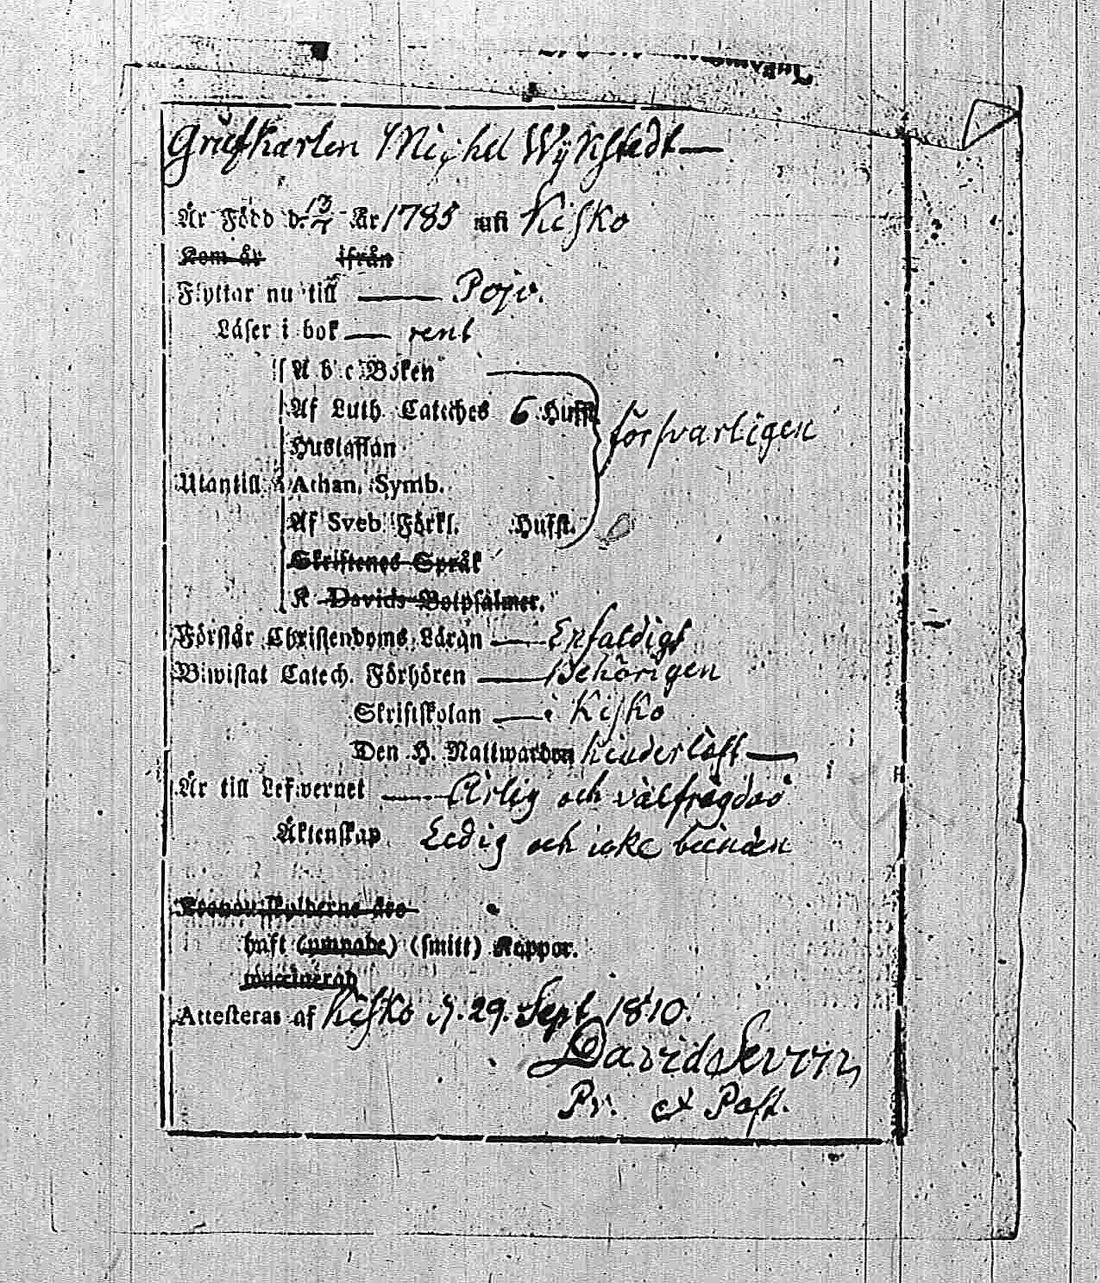 Grufkarlen Michel Wykstedt
Är Född d. 13/7 År 1785 uti Kisko
Kom år ifrån
Flyttar nu till Pojo.
Läser i bok rent
A b c Boken
Af Luth. Cateches 6 Hufst. försvarligen
Hustaflan
Utantill Athan. Symb.
Af Sveb. Förkl. Hufst.
Skriftenes Språk
K Davids Botpsalmer.
Förstår Christendoms Läran Enfaldigt
Biwistat Catech. Förhören Behörigen
Skriftskolan i Kisko
Den H. Nattwarden
Är till Lefwernet Ärlig och välfrägdad
Äktenskap Ledig och icke bunden
haft (ympade) (smitt) Koppor.
vaccinerad
Attesteras af Kisko d. 29. Sept. 1810.
David
Pr. et Past.